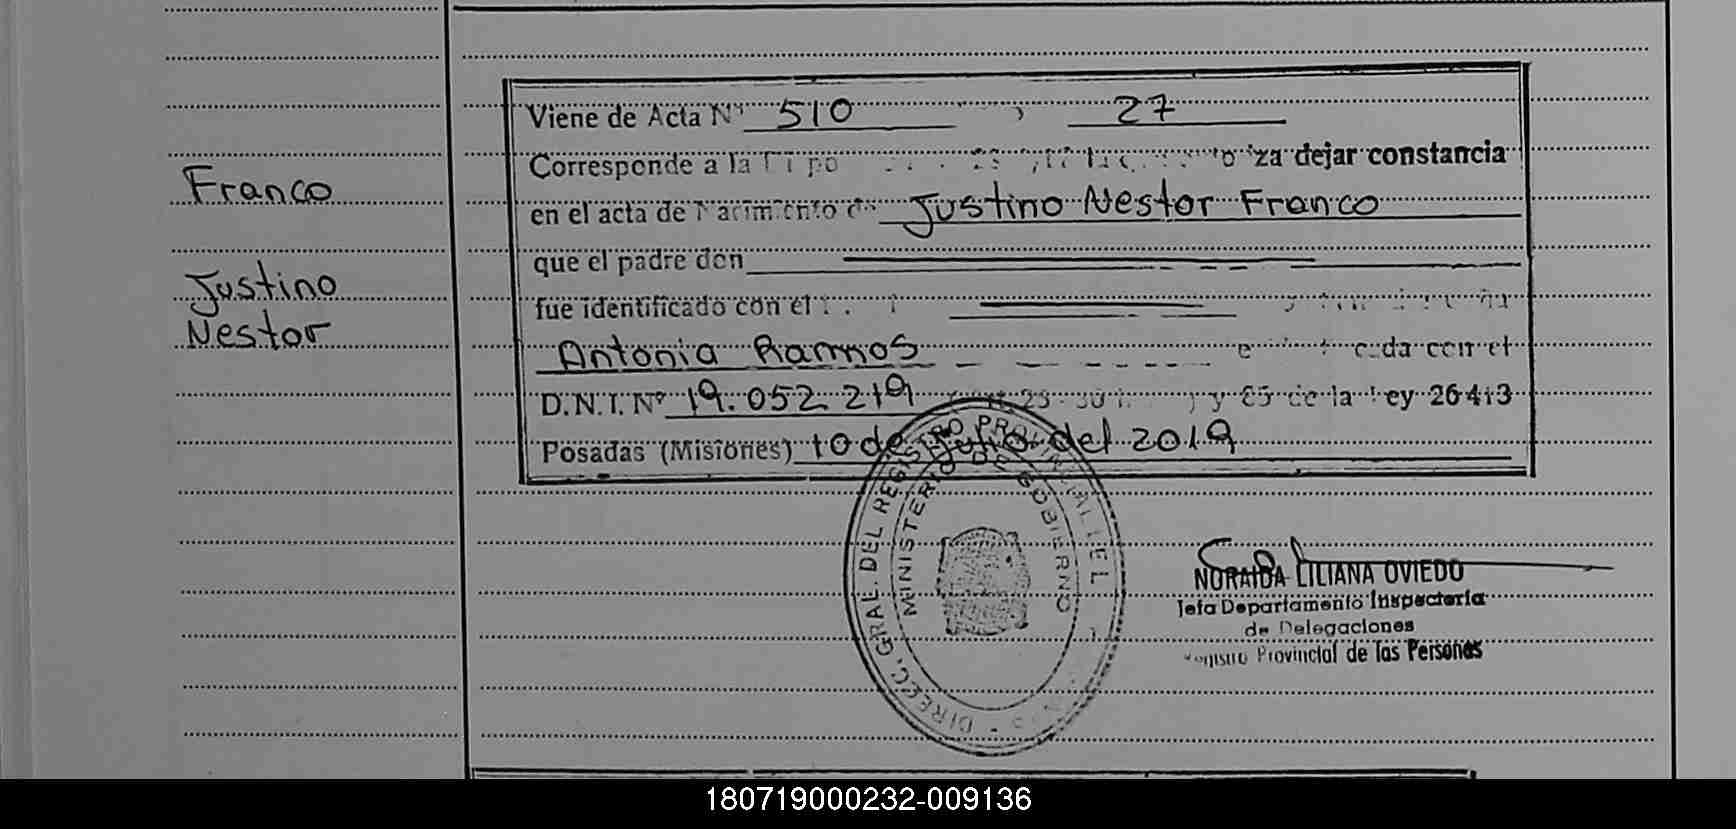 Franco
Justino
Nestor
Viene de Acta N° 510 27
Corresponde a la dejar constancia
en el acta de Nacimiento de Justino Nestor Franco
que el padre don
fue identificado con el
Antonia Ramos con el
D.N.I. N° 19.052.219 y 85 de la Ley 26413
Posadas (Misiones) 10 de Julio del 2019
DIRECC. GRAL. DEL REGISTRO PROVINCIAL DE L
MINISTERIO DE GOBIERNO
NORAIDA LILIANA OVIEDO
Jefa Departamento Inspectoría
de Delegaciones
Registro Provincial de las Personas
180719000232-009136